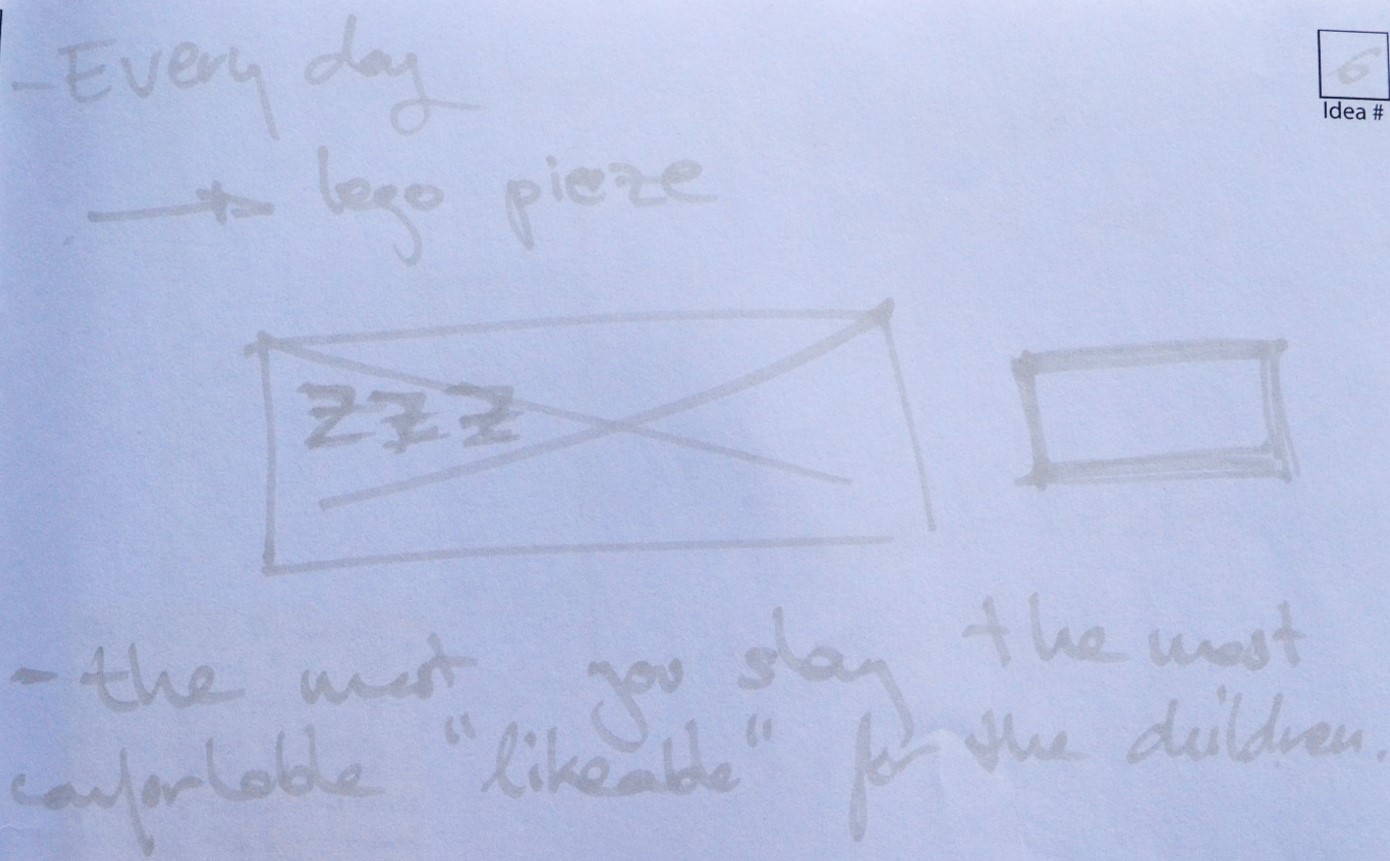 - Every day
6
Idea #
→ lego pieze
ZZZ
- the most you stay the most
confortable "likeable" for the children.